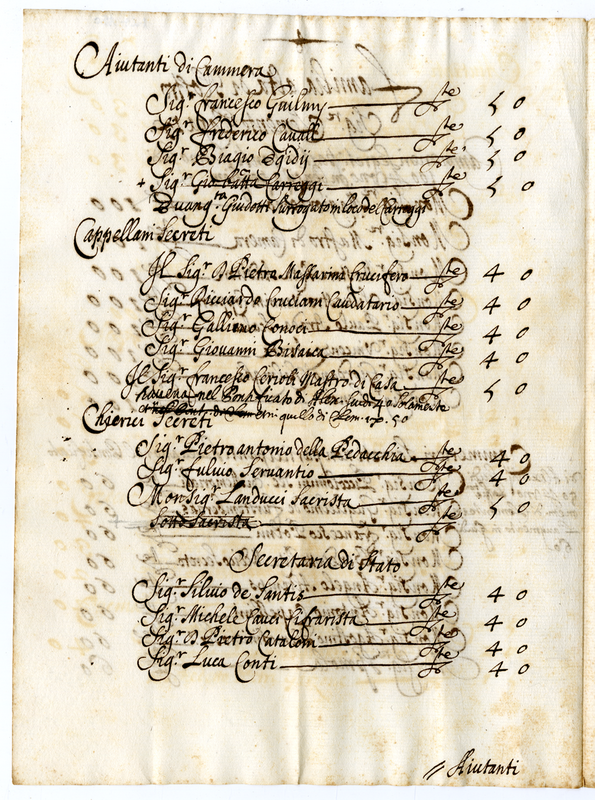 Aiutanti di Cammera
Sig.r Francesco Guilmy — ste 50
Sig.r Frederico Cavall — ste 50
Sig.r Biagio Egidij — ste 50
+ Sig.r Gio: batta Carreggi — ste 50
Guidotti Surrogato in loco del Carreggi
Cappellani Secreti
Il Sig.r D Pietro Massarini Crucifero — ste 40
Sig.r Ricciardo Cruciani Caudatario — ste 40
Sig.r Gallieno Conoci — ste 40
Sig.r Giovanni Bisaica — ste 40
Il Sig.r Francesco Cerioli Mastro di Casa — ste 50
haveva nel Pontificato di Alex. scudi 40 solamente
quello di Clem. 50
Chierici Secreti
Sig.r Pietro antonio della Pedacchia — ste 40
Sig.r Fulvio Servantio — ste 40
Monsig.r Landucci Sacrista — ste 50
Sotto Sacrista — ste
Secretaria di Stato
Sig.r Silvio de Santis — ste 40
Sig.r Michele Cauci Cifrarista — ste 40
Sig.r D Pietro Cataloni — ste 40
Sig.r Luca Conti — ste 40
// Aiutanti